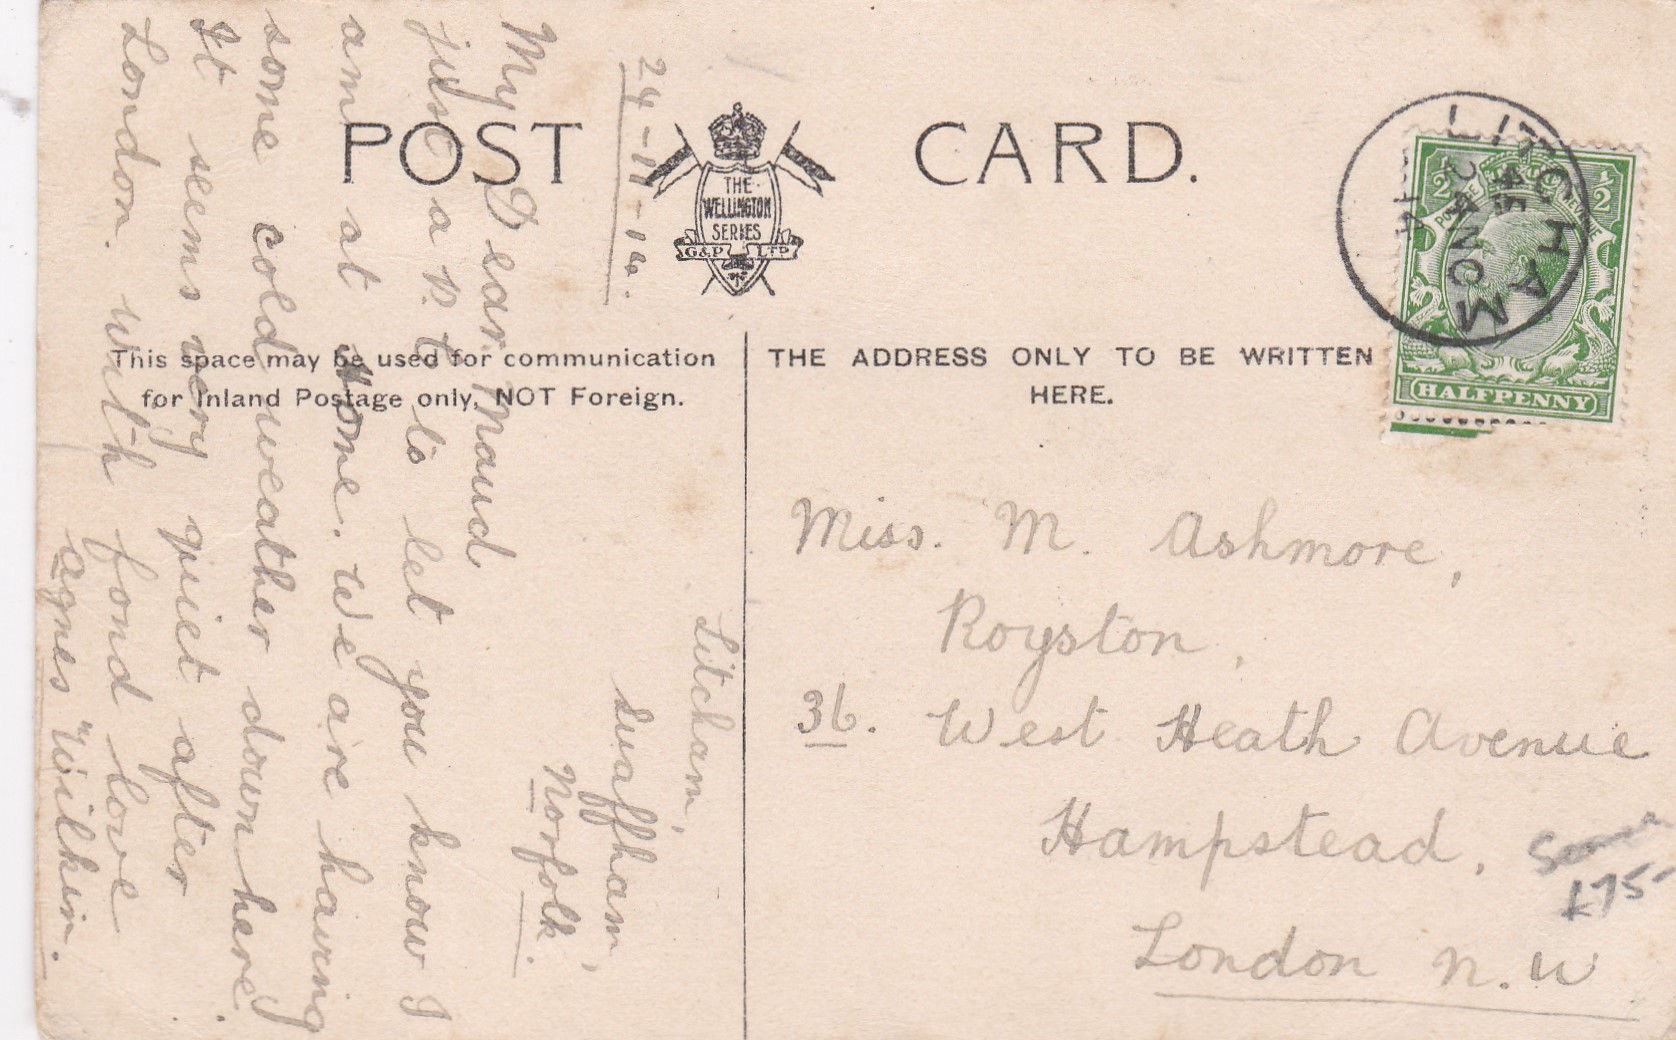 POST CARD.
THE
WELLINGTON
SERIES
G&P LTD
This space may be used for communication
for Inland Postage only, NOT Foreign.
THE ADDRESS ONLY TO BE WRITTEN
HERE.
LITCHAM
24 NO
14
½ ½
HALFPENNY
Litcham,
Swaffham,
Norfolk.
24-11-14.
My Dear Maud
just a P.C to let you know I
am at Home. We are having
some cold weather down here.
It seems very quiet after
London. with fond love
Agnes Wilkin.
Miss. M. Ashmore,
Royston,
36. West Heath Avenue
Hampstead,
London N.W
£75-